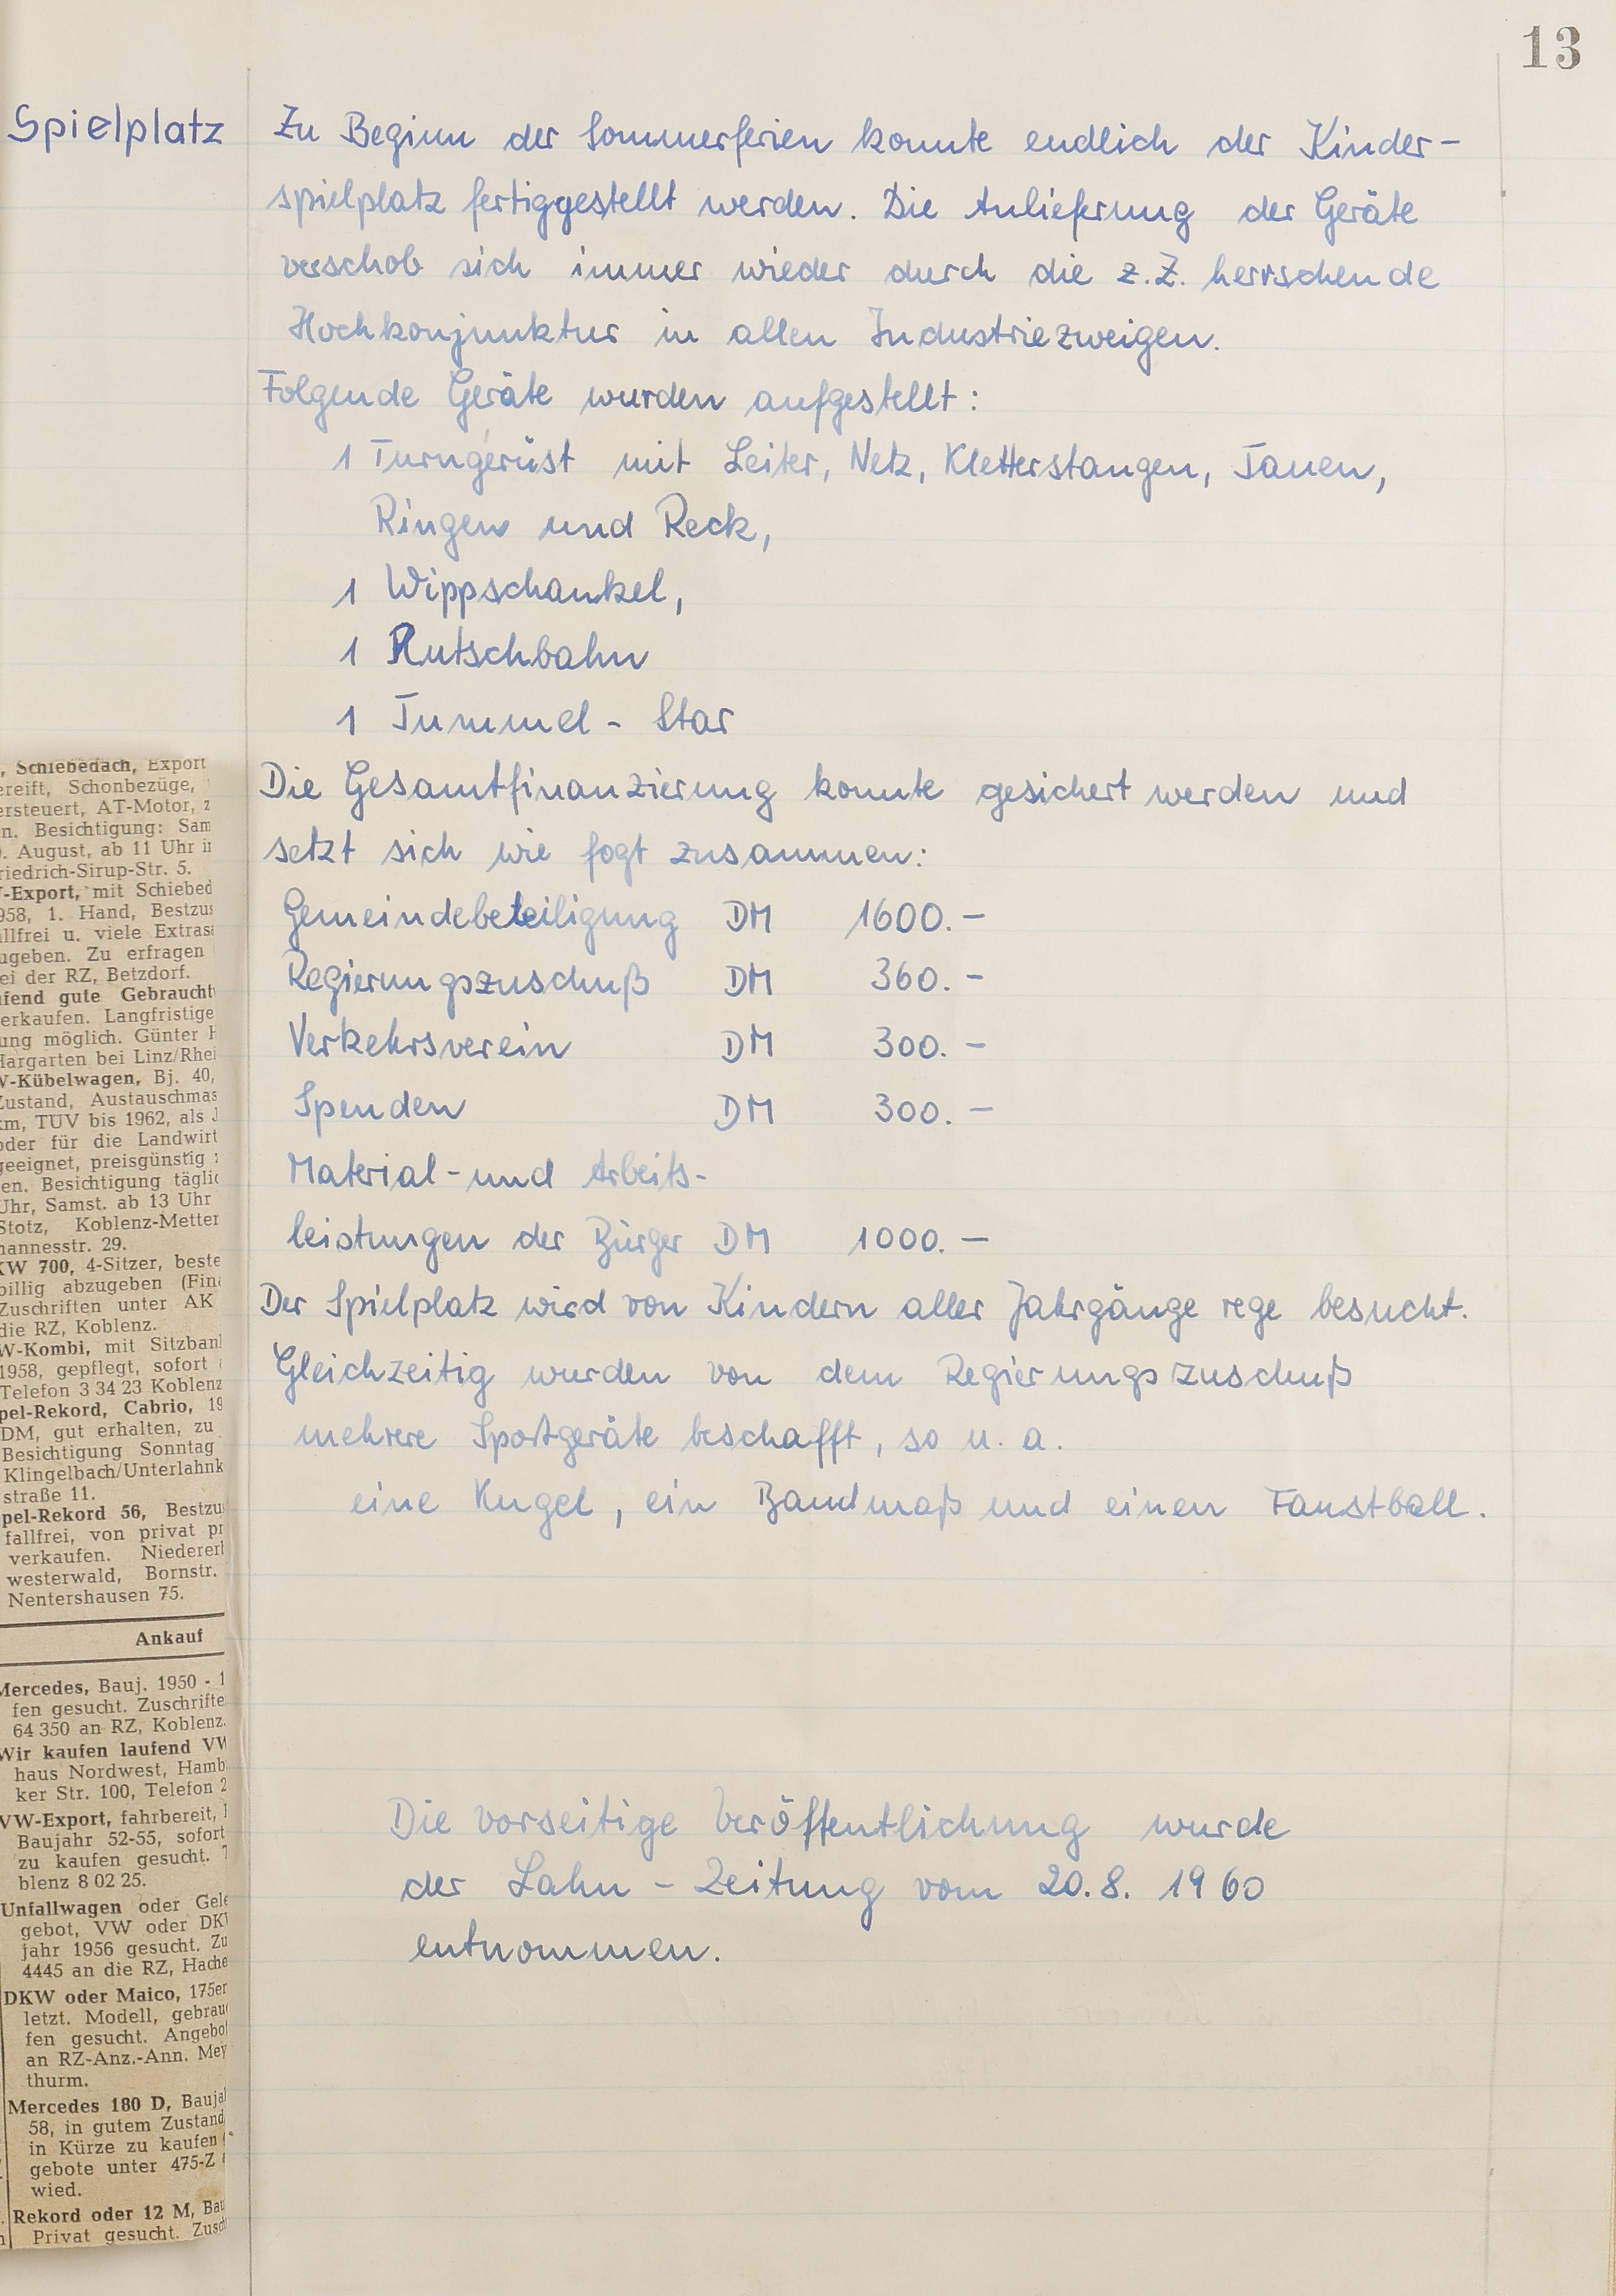 13
Spielplatz
Zu Beginn der Sommerferien konnte endlich der Kinder-
spielplatz fertiggestellt werden. Die Anlieferung der Geräte
verschob sich immer wieder durch die z.Z. herrschende
Hochkonjunktur in allen Industriezweigen.
Folgende Geräte wurden aufgestellt:
1 Turngerüst mit Leiter, Netz, Kletterstangen, Tauen,
Ringen und Reck,
1 Wippschaukel,
1 Rutschbahn
1 Tummel - Star
Die Gesamtfinanzierung konnte gesichert werden und
setzt sich wie fogt zusammen:
Gemeindebeteiligung DM 1600.-
Regierungszuschuß DM 360.-
Verkehrsverein DM 300.-
Spenden DM 300.-
Material- und Arbeits-
leistungen der Bürger DM 1000.-
Der Spielplatz wird von Kindern aller Jahrgänge rege besucht.
Gleichzeitig wurden von dem Regierungszuschuß
mehrere Sportgeräte beschafft, so u. a.
eine Kugel, ein Bandmaß und einen Faustball.
Die vorseitige Veröffentlichung wurde
der Lahn - Zeitung vom 20.8. 1960
entnommen.
, Schiebedach, Export
ereift, Schonbezüge,
ersteuert, AT-Motor, z
n. Besichtigung: Sam
. August, ab 11 Uhr i
riedrich-Sirup-Str. 5.
-Export, mit Schiebed
958, 1. Hand, Bestzus
llfrei u. viele Extras
ugeben. Zu erfragen
ei der RZ, Betzdorf.
fend gute Gebraucht
erkaufen. Langfristige
ung möglich. Günter H
Hargarten bei Linz/Rhei
W-Kübelwagen, Bj. 40,
Zustand, Austauschmas
km, TÜV bis 1962, als J
oder für die Landwirt
geeignet, preisgünstig
en. Besichtigung täglic
Uhr, Samst. ab 13 Uhr
Stotz, Koblenz-Metter
hannesstr. 29.
KW 700, 4-Sitzer, beste
billig abzugeben (Fin
Zuschriften unter AK
die RZ, Koblenz.
W-Kombi, mit Sitzban
1958, gepflegt, sofort
Telefon 3 34 23 Koblenz
pel-Rekord, Cabrio, 19
DM, gut erhalten, zu
Besichtigung Sonntag
Klingelbach/Unterlahnk
straße 11.
pel-Rekord 56, Bestzu
fallfrei, von privat pr
verkaufen. Niedererl
westerwald, Bornstr.
Nentershausen 75.
Ankauf
Mercedes, Bauj. 1950 - 1
fen gesucht. Zuschrifte
64 350 an RZ, Koblenz.
Wir kaufen laufend VW
haus Nordwest, Hamb
ker Str. 100, Telefon 2
VW-Export, fahrbereit,
Baujahr 52-55, sofort
zu kaufen gesucht. T
blenz 8 02 25.
Unfallwagen oder Gele
gebot, VW oder DKW
jahr 1956 gesucht. Zu
4445 an die RZ, Hache
DKW oder Maico, 175er
letzt. Modell, gebrau
fen gesucht. Angebo
an RZ-Anz.-Ann. Mey
thurm.
Mercedes 180 D, Bauja
58, in gutem Zustand
in Kürze zu kaufen
gebote unter 475-Z
wied.
Rekord oder 12 M, Bau
Privat gesucht. Zusch